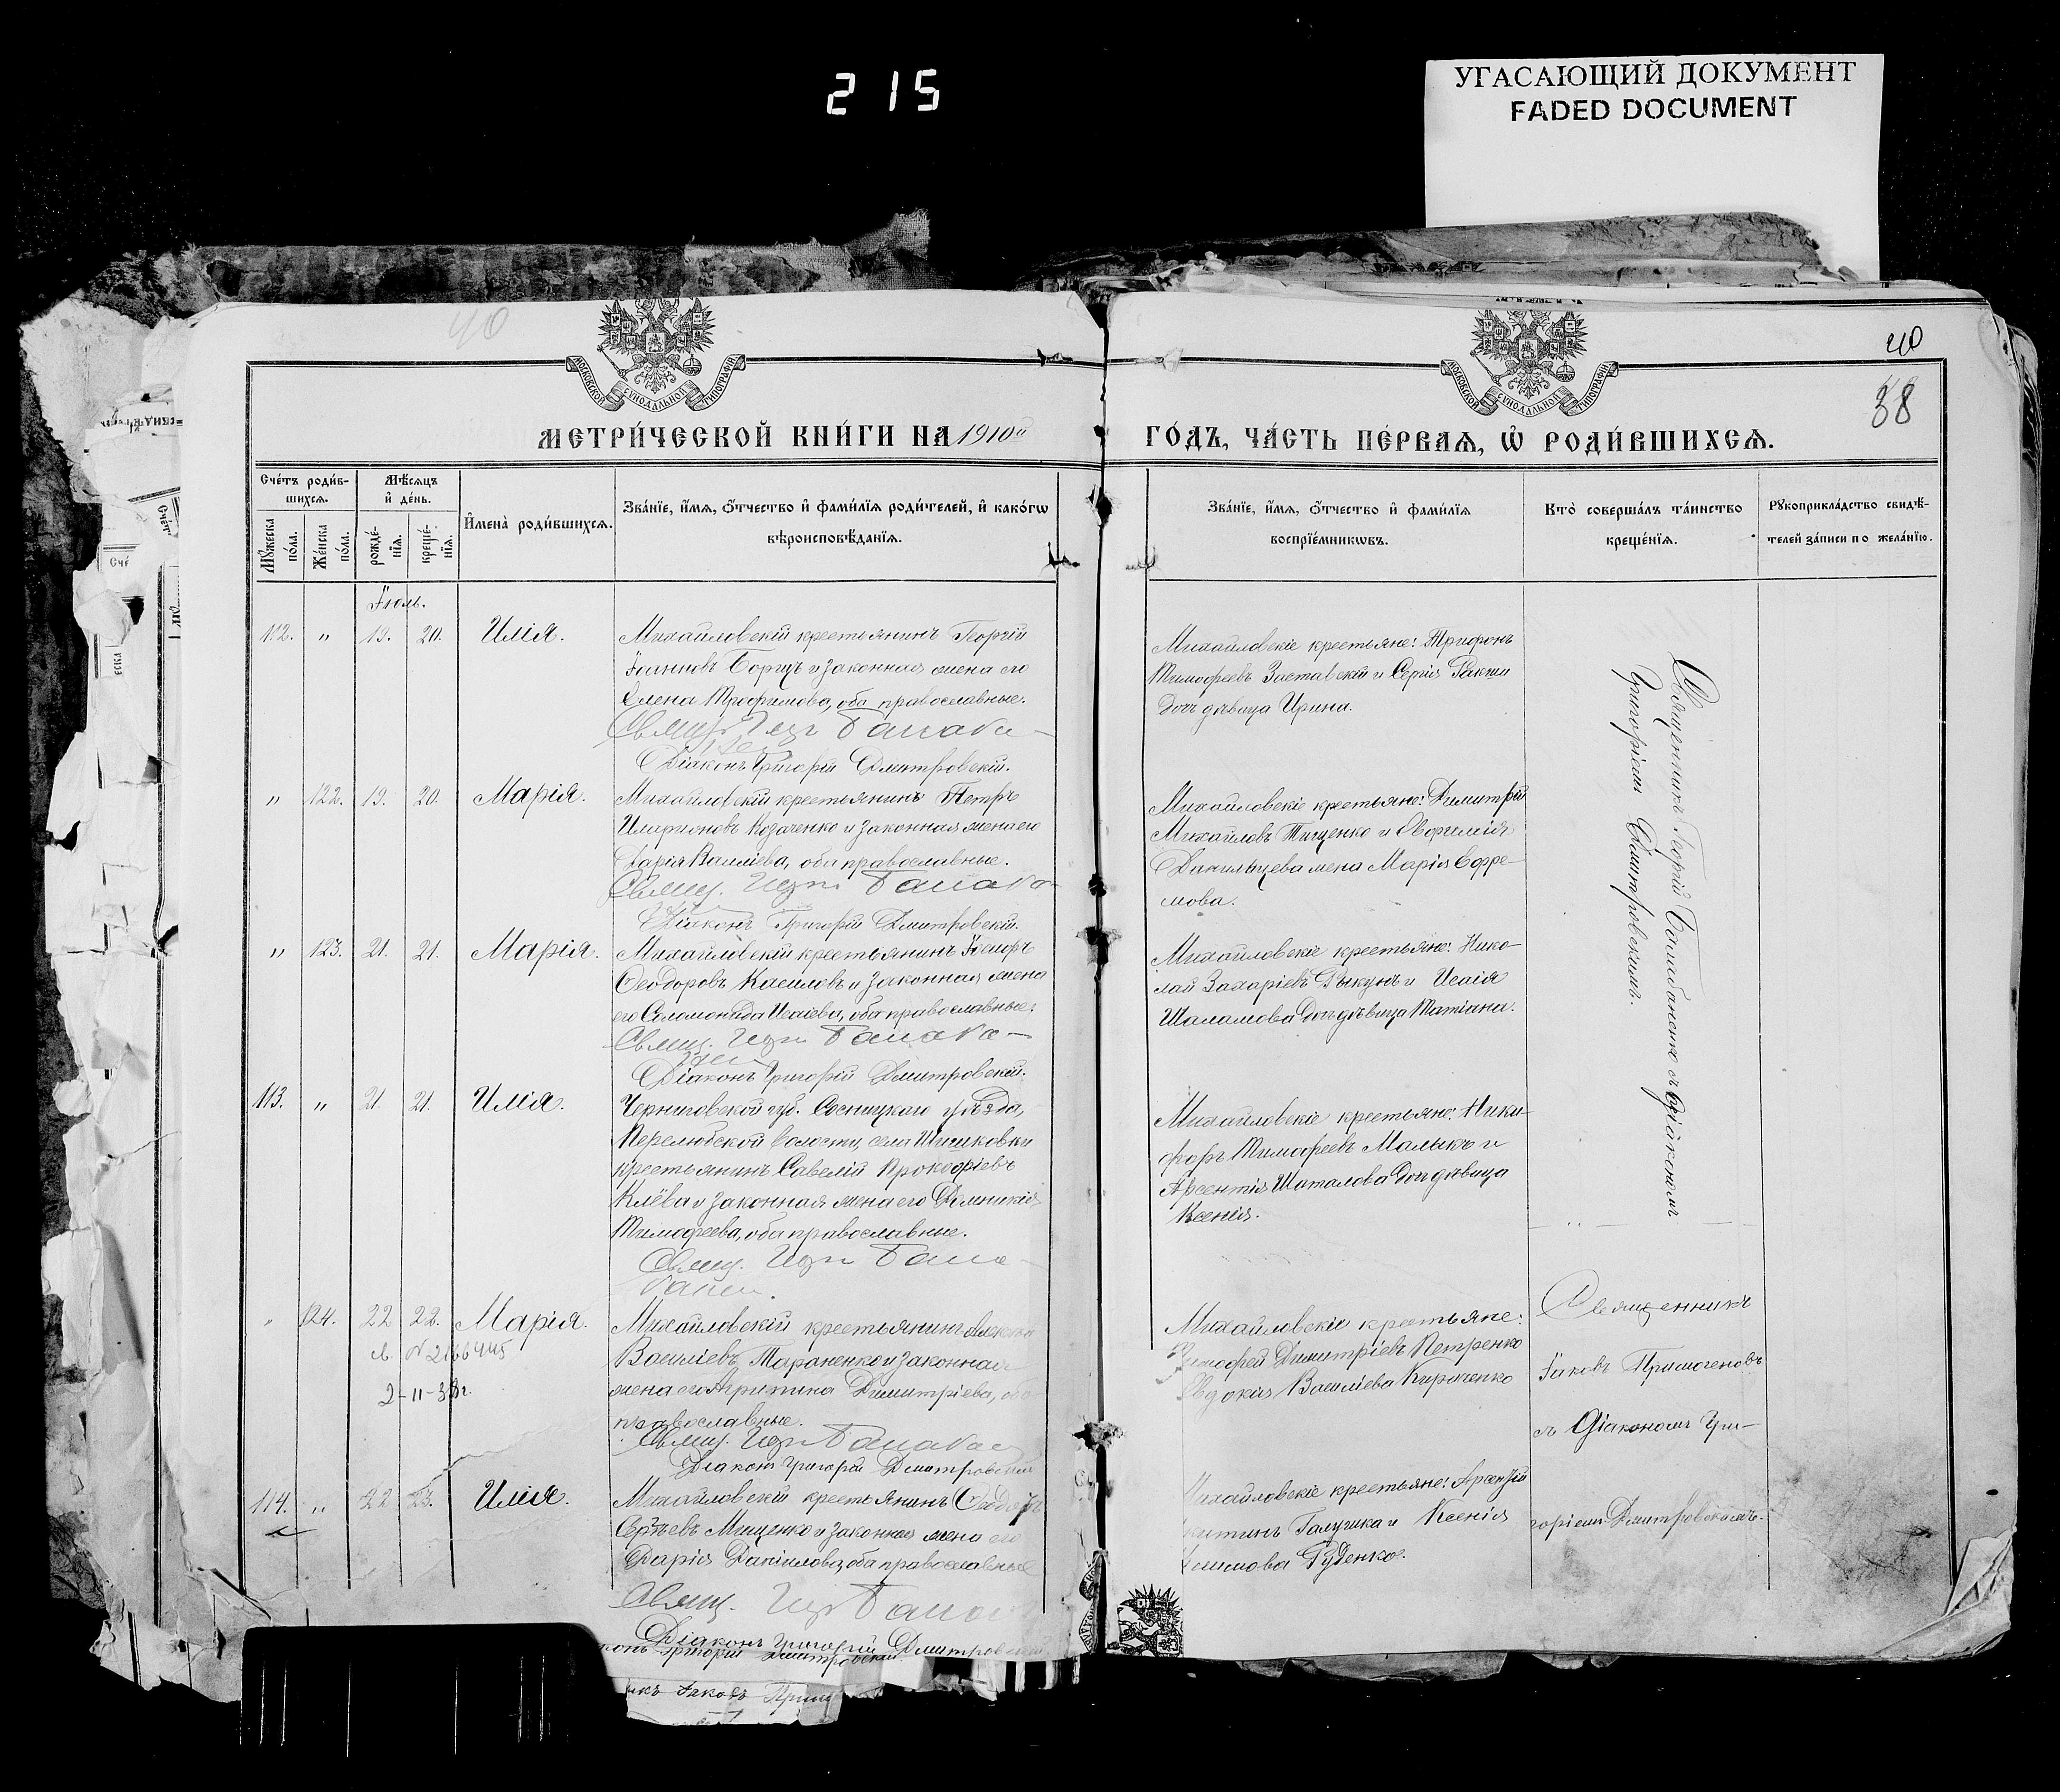 215
УГАСАЮЩИЙ ДОКУМЕНТ
FADED DOCUMENT
40
40
38
МОСКОВСКОЙ СѴНОДАЛЬНОЙ ТИПОГРАФІИ
МОСКОВСКОЙ СѴНОДАЛЬНОЙ ТИПОГРАФІИ
МЕТРИ́ЧЕСКОЙ КНИ́ГИ НА 1910й ГО́ДЪ, ЧА́СТЬ ПЕ́РВАѦ, Ѡ РОДИ́ВШИХСѦ.
Счéтъ роди́в-
шихсѧ.
Мѣ́сѧцъ
и де́нь.
Мꙋ́жеска по́ла.
Же́нска по́ла.
рожде́-
нїѧ.
креще́-
нїѧ.
Имена̀ роди́вшихсѧ.
Зва́нїе, и́мѧ, о́тчество и фами́лїѧ роди́телей, и како́гѡ
вѣроисповѣ́данїѧ.
Зва́нїе, и́мѧ, о́тчество и фами́лїѧ
воспрїе́мникѡвъ.
Кто̀ соверша́лъ та́инство
креще́нїѧ.
Рꙋкоприкла́дство свидѣ́-
телей за́писи по жела́нїю.
Іюль.
112. " 19. 20. Илія.
Михайловскій крестьянинъ Георгій
Іоанновъ Борщъ и законная жена его
Елена Трофимова, оба православные.
Діаконъ Григорій Дмитровскій.
Михайловскіе крестьяне: Трифонъ
Тимофеевъ Заставскій и Сергія Ракши
дочь дѣвица Ирина.
Священникъ Георгій Балабаненко съ діакономъ
Григоріемъ Дмитровскимъ.
" 122. 19. 20. Марія.
Михайловскій крестьянинъ Петръ
Иларионовъ Козаченко и законная жена его
Дарія Василіева, оба православные.
Діаконъ Григорій Дмитровскій.
Михайловскіе крестьяне: Димитрій
Михайловъ Тищенко и Евфимія
Данильцева жена Марія Ефре-
мова.
" 123. 21. 21. Марія.
Михайловскій крестьянинъ
Ѳеодоровъ Касиловъ и законная жена
его Соломонида Исаіева, оба православные.
Діаконъ Григорій Дмитровскій.
Михайловскіе крестьяне: Нико-
лай Захаріевъ Рыкунъ и Исаія
Шаламова дочь дѣвица Татіана.
113. " 21. 21. Илія.
Черниговской губ. Сосницкаго уѣзда,
Перелюбской волости, села Шишковки
крестьянинъ Савелій Прокофіевъ
Клёва и законная жена его Домникія
Тимофеева, оба православные.
Михайловскіе крестьяне: Ники-
форъ Тимофеевъ Малыкъ и
Арсентія Шаталова дочь дѣвица
Ксенія.
" 124. 22 22. Марія.
св. № 2166445
2-11-38г.
Михайловскій крестьянинъ
Василіевъ Тараненко и законная
жена его Агрипина Димитріева, оба
православные.
Діаконъ Григорій Дмитровскій
Михайловскіе крестьяне:
Тимофей Димитріевъ Петренко
Евдокія Василіева Кириченко
Священникъ
Іаковъ Примогеновъ
съ діакономъ Гри-
горіемъ Дмитровскимъ.
114. " 22 23. Илія.
Михайловскій крестьянинъ Ѳеодоръ
Сергѣевъ Мищенко и законная жена его
Дарія Даніилова, оба православные
Діаконъ Григорій Дмитровскій
Михайловскіе крестьяне: Арсентій
Галушка и Ксенія
Руденко.
конъ Григорій Дмитровскій
икъ Іаковъ Прим